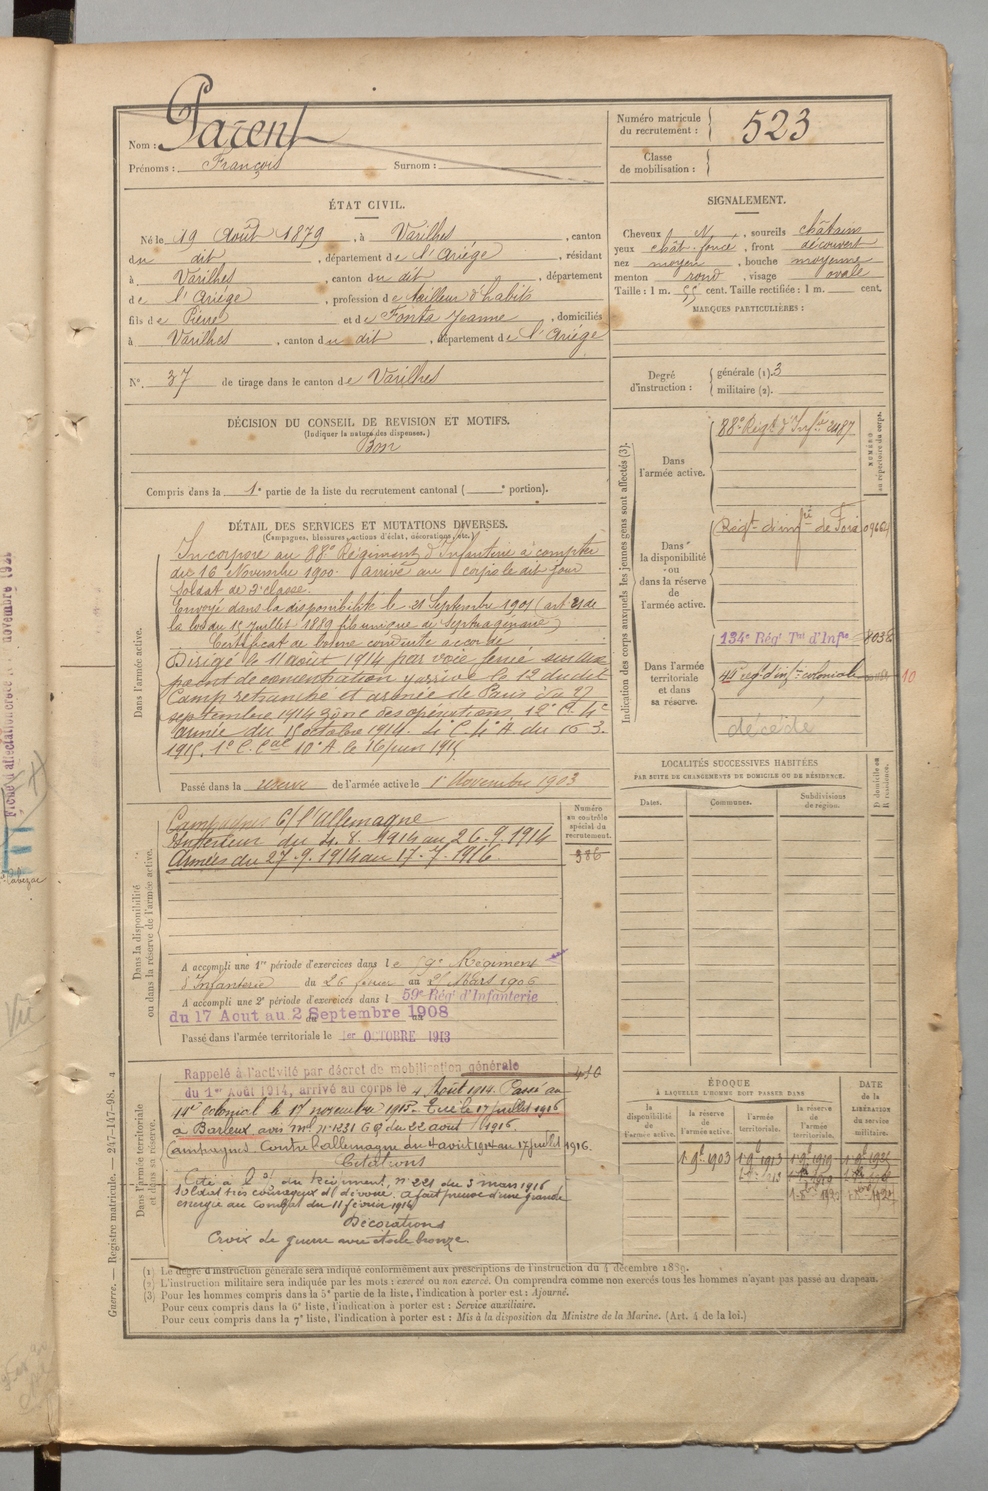 Nom : Parent
Prénoms : François Surnom :
Numéro matricule du recrutement : 523
Classe de mobilisation :
ÉTAT CIVIL.
Né le 19 Août 1879, à Varilhes, canton
du dit, département de l'Ariège, résidant
à Varilhes, canton du dit, département
de l'Ariège, profession de tailleur d'habits
fils de Pierre et de Fonta Jeanne, domiciliés
à Varilhes, canton du dit, département de l'Ariège
N° 37 de tirage dans le canton de Varilhes
SIGNALEMENT.
Cheveux N, sourcils châtains
yeux chât. foncé, front découvert
nez moyen, bouche moyenne
menton rond, visage ovale
Taille : 1 m. 55 cent. Taille rectifiée : 1 m. cent.
MARQUES PARTICULIÈRES :
Degré d'instruction : générale (1). 3
militaire (2).
DÉCISION DU CONSEIL DE REVISION ET MOTIFS.
(Indiquer la nature des dispenses.)
Bon
Compris dans la 1e partie de la liste du recrutement cantonal ( e portion).
DÉTAIL DES SERVICES ET MUTATIONS DIVERSES.
(Campagnes, blessures, actions d'éclat, décorations, etc.)
Dans l'armée active.
Incorporé au 88e Régiment d'Infanterie à compter
du 16 Novembre 1900. arrivé au corps le dit jour
Soldat de 2e classe.
Envoyé dans la disponibilité le 21 Septembre 1901 (art 21 de
la loi du 15 Juillet 1889 fils unique de septuagénaire)
Certificat de bonne conduite accordé
Dirigé le 11 août 1914 par voie ferrée sur un
point de concentration y arrivé le 12 dudit
Camp retranché et armée de Paris
septembre 1914 zône des opérations 12e C. 4e
armée du 15 octobre 1914. 4e C. 4e A du 16 3.
1915. 1e C. Cal 10e A. le 16 juin 1915.
Passé dans la réserve de l'armée active le 1er Novembre 1903
Dans la disponibilité ou dans la réserve de l'armée active.
Numéro au contrôle spécial du recrutement.
386
Campagnes C/ l'Allemagne
Intérieur du 4. 8. 1914 au 26. 9. 1914
Armées du 27. 9. 1914 au 17. 7. 1916.
A accompli une 1re période d'exercices dans le 9e Régiment
d'Infanterie du 26 février au Mars 1906
A accompli une 2e période d'exercices dans l 59e Régt d'Infanterie
du 17 Aout au 2 Septembre 1908
Passé dans l'armée territoriale le 1er OCTOBRE 1913
Dans l'armée territoriale et dans sa réserve.
Rappelé à l'activité par décret de mobilisation générale
du 1er Août 1914, arrivé au corps le 4 Août 1914. Passé au
colonial le 17 novembre 1915. Tué le 17 juillet 1916
à Barleux avis du 22 août 1916.
Campagnes Contre l'allemagne du 4 août 1914 au 17 juillet 1916.
Citations
Cité à du Régiment, n° 221 du 3 mars 1916
Soldat très courageux et dévoué. a fait preuve d'une grande
énergie au combat du 11 février 1916
Décorations
Croix de guerre avec étoile bronze.
Indication des corps auxquels les jeunes gens sont affectés (3).
NUMÉRO au répertoire du corps.
Dans l'armée active.
88e Régt d'Infie 2487
Dans la disponibilité ou dans la réserve de l'armée active.
Régt d'infrie de Foix
Dans l'armée territoriale et dans sa réserve.
134e Régt Tal d'Infie
régt d'infie coloniale
10
décédé
LOCALITÉS SUCCESSIVES HABITÉES
PAR SUITE DE CHANGEMENTS DE DOMICILE OU DE RÉSIDENCE.
Dates. Communes. Subdivisions de région. D. domicile ou R. résidence.
ÉPOQUE
À LAQUELLE L'HOMME DOIT PASSER DANS
la disponibilité de l'armée active. la réserve de l'armée active. l'armée territoriale. la réserve de l'armée territoriale.
DATE de la LIBÉRATION du service militaire.
(1) Le degré d'instruction générale sera indiqué conformément aux prescriptions de l'instruction du 4 décembre 1889.
(2) L'instruction militaire sera indiquée par les mots : exercé ou non exercé. On comprendra comme non exercés tous les hommes n'ayant pas passé au drapeau.
(3) Pour les hommes compris dans la 5e partie de la liste, l'indication à porter est : Ajourné.
Pour ceux compris dans la 6e liste, l'indication à porter est : Service auxiliaire.
Pour ceux compris dans la 7e liste, l'indication à porter est : Mis à la disposition du Ministre de la Marine. (Art. 4 de la loi.)
Guerre. — Registre matricule. — 247-147-98. 4
Vu